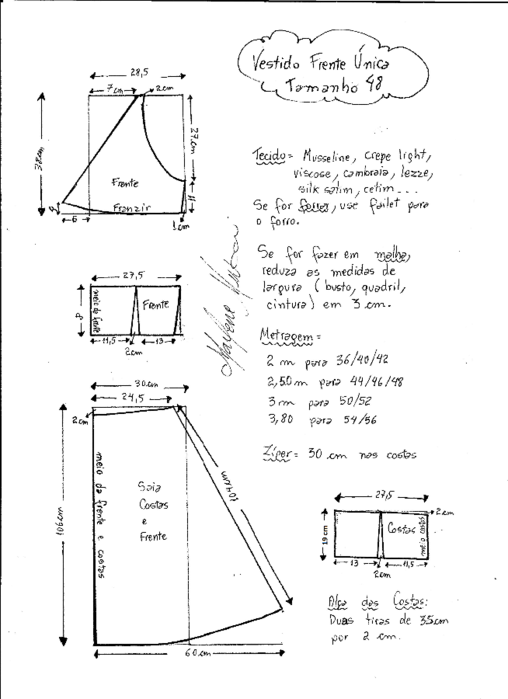 Vestido Frente Única
Tamanho 48
28,5
7cm
2cm
38cm
27cm
Frente
Franzir
11
6
1cm
Tecido = Musseline, crepe light,
viscose, cambraia, lezze,
silk satim, cetim...
Se for forrar, use failet para
o forro.
Se for fazer em malha,
reduza as medidas de
largura (busto, quadril,
cintura) em 3 cm.
27,5
meio da frente
Frente
11,5
13
2cm
Metragem =
2 m para 36/40/42
2,50m para 44/46/48
3m para 50/52
3,80 para 54/56
Zíper = 30 cm nas costas
30cm
24,5
2cm
106cm
meio da frente e costas
Saia
Costas
e
Frente
104cm
60cm
27,5
2cm
19cm
Costas
meio costas
13
11,5
2cm
Alça das Costas:
Duas tiras de 35cm
por 2 cm.